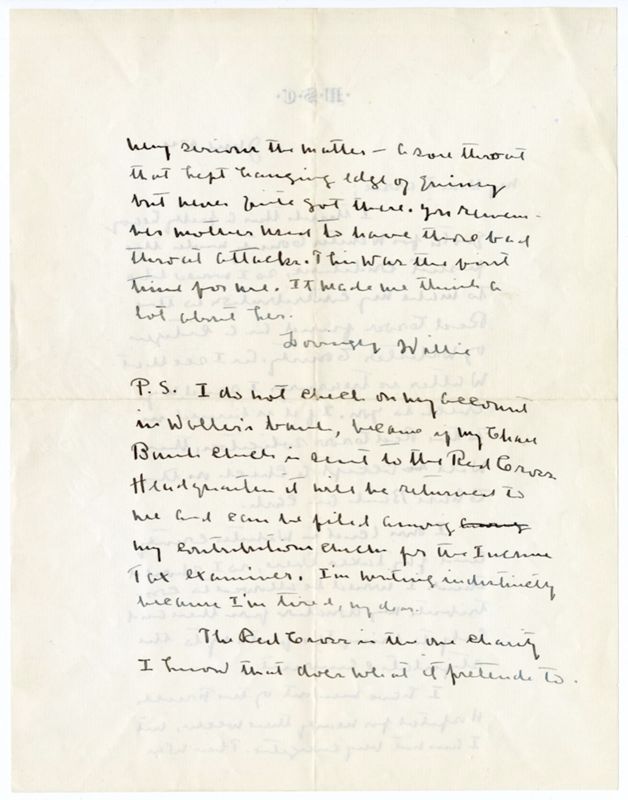 very serious the matter – a sore throat
that kept hanging edge of Quinsy
but never quite got there. You remem-
ber mother used to have those bad
throat attacks. This was the first
time for me. It made me think a
lot about her.
Lovingly Willie
P.S. I do not check on my account
in Walter's bank, because if my Chase
Bank check is sent to the Red Cross
Headquarters it will be returned to
me and can be filed among among
my contributions checks for the Income
Tax examiner. I'm writing indistinctly
because I'm tired, my dear.
The Red Cross is the one charity
I know that does what it pretends to.